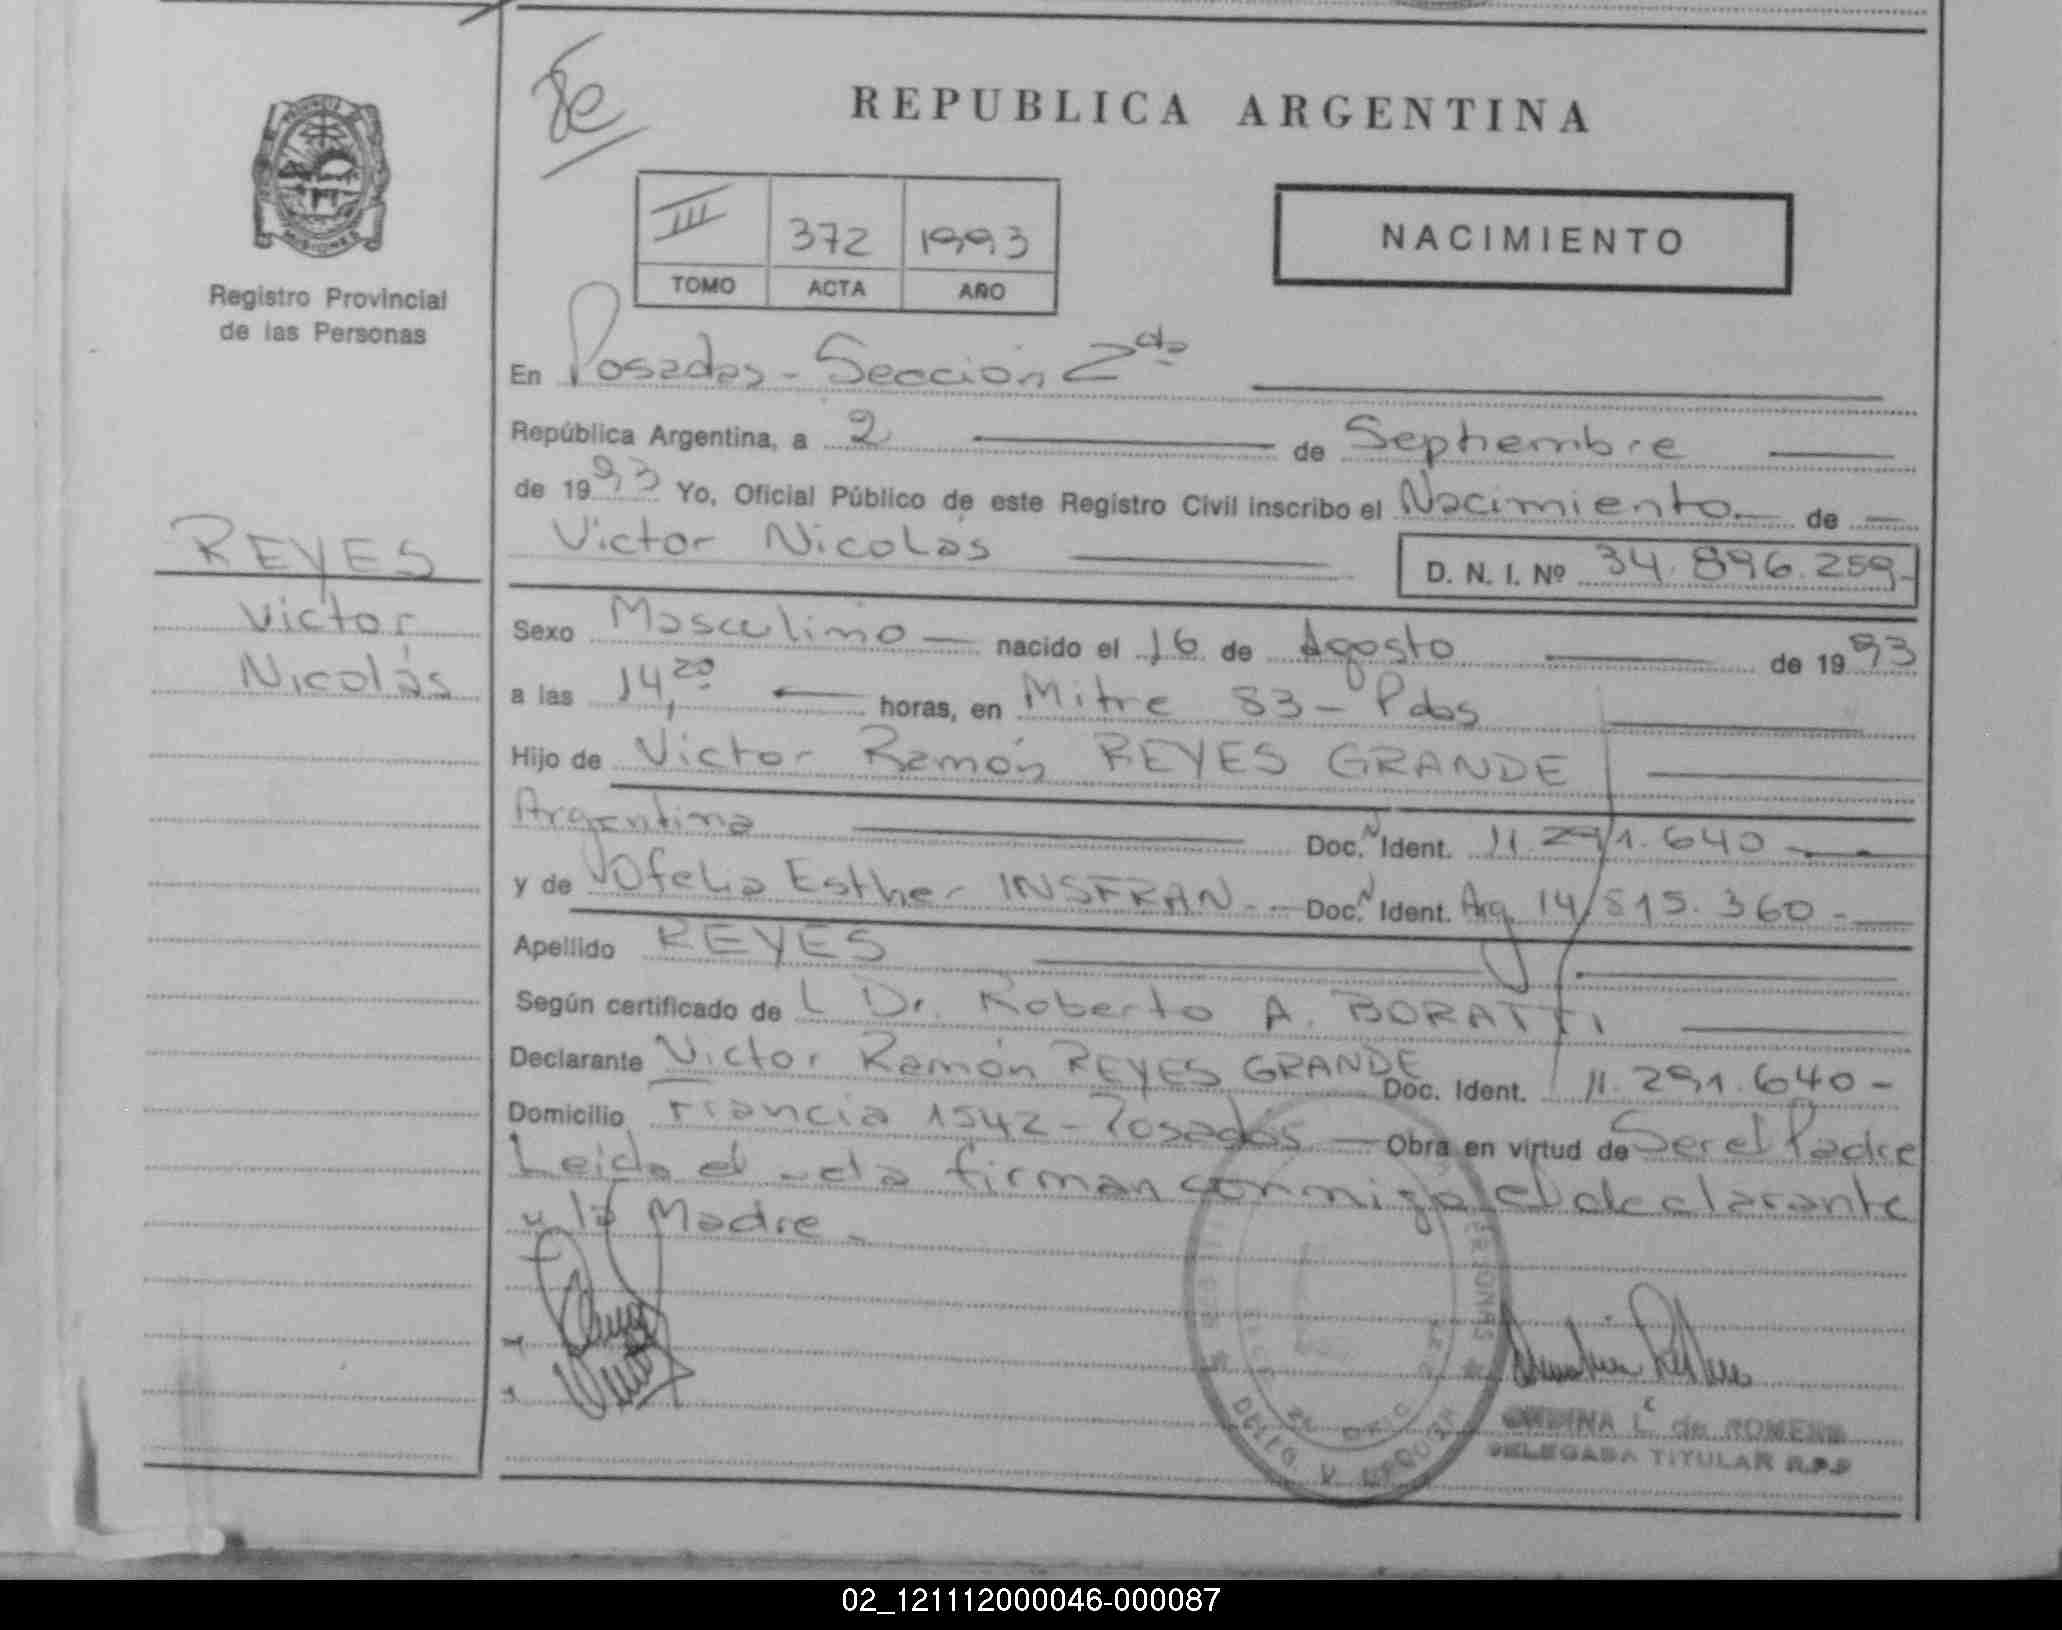 REPUBLICA ARGENTINA
PROVINCIA
MISIONES
Registro Provincial
de las Personas
III 372 1993
TOMO ACTA AÑO
NACIMIENTO
En Posadas - Sección 2da
República Argentina, a 2 de Septiembre
de 1993 Yo, Oficial Público de este Registro Civil inscribo el Nacimiento de
Victor Nicolás D. N. I. Nº 34.896.259-
REYES
Victor
Nicolás
Sexo Masculino nacido el 16 de Agosto de 1993
a las 14,20 horas, en Mitre 83 - Pdas
Hijo de Victor Ramón REYES GRANDE
Argentina Doc. Ident. 11.291.640
y de Ofelia Esther INSFRAN - Doc. Ident. Arg. 14.815.360 -
Apellido REYES
Según certificado de L Dr. Roberto A. BORATTI
Declarante Victor Ramón REYES GRANDE Doc. Ident. 11.291.640 -
Domicilio Francia 1542 - Posadas - Obra en virtud de Ser el Padre
Leida el acta firman conmigo el declarante
y la Madre -
PERSONAS
L. de ROMERO
DELEGADA TITULAR R.P.P
02_121112000046-000087